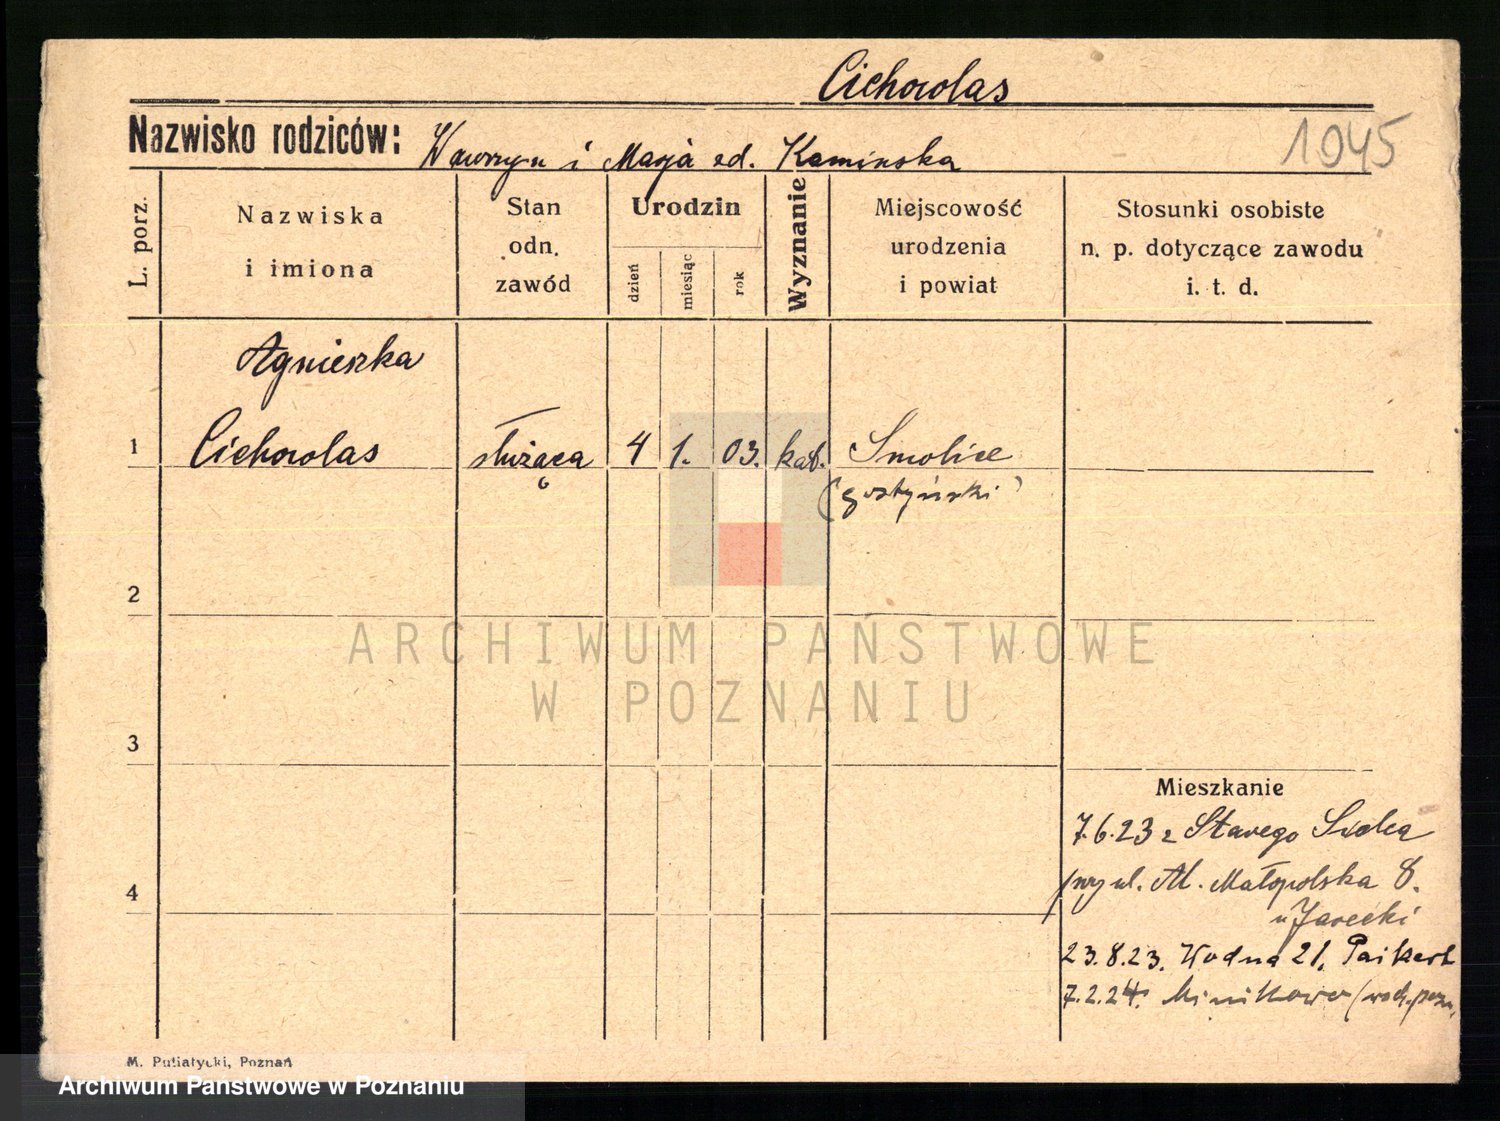 Cichowlas
Nazwisko rodziców: Wawrzyn i Marja zd. Kaminska
1945
L. porz.
Nazwiska
i imiona
Stan
odn.
zawód
Urodzin
dzień
miesiąc
rok
Wyznanie
Miejscowość
urodzenia
i powiat
Stosunki osobiste
n. p. dotyczące zawodu
i. t. d.
Agnieszka
1 Cichowlas służąca 4 1. 03. kat. Smolice
(gostyński)
2
ARCHIWUM PAŃSTWOWE
W POZNANIU
3
Mieszkanie
7.6.23 z Starego
4
ul. Al. Małopolska 8.
u Jarecki
23.8.23. Wodna 21. Paikert
7.2.24. Minikowo
M. Putiatycki, Poznań
Archiwum Państwowe w Poznaniu